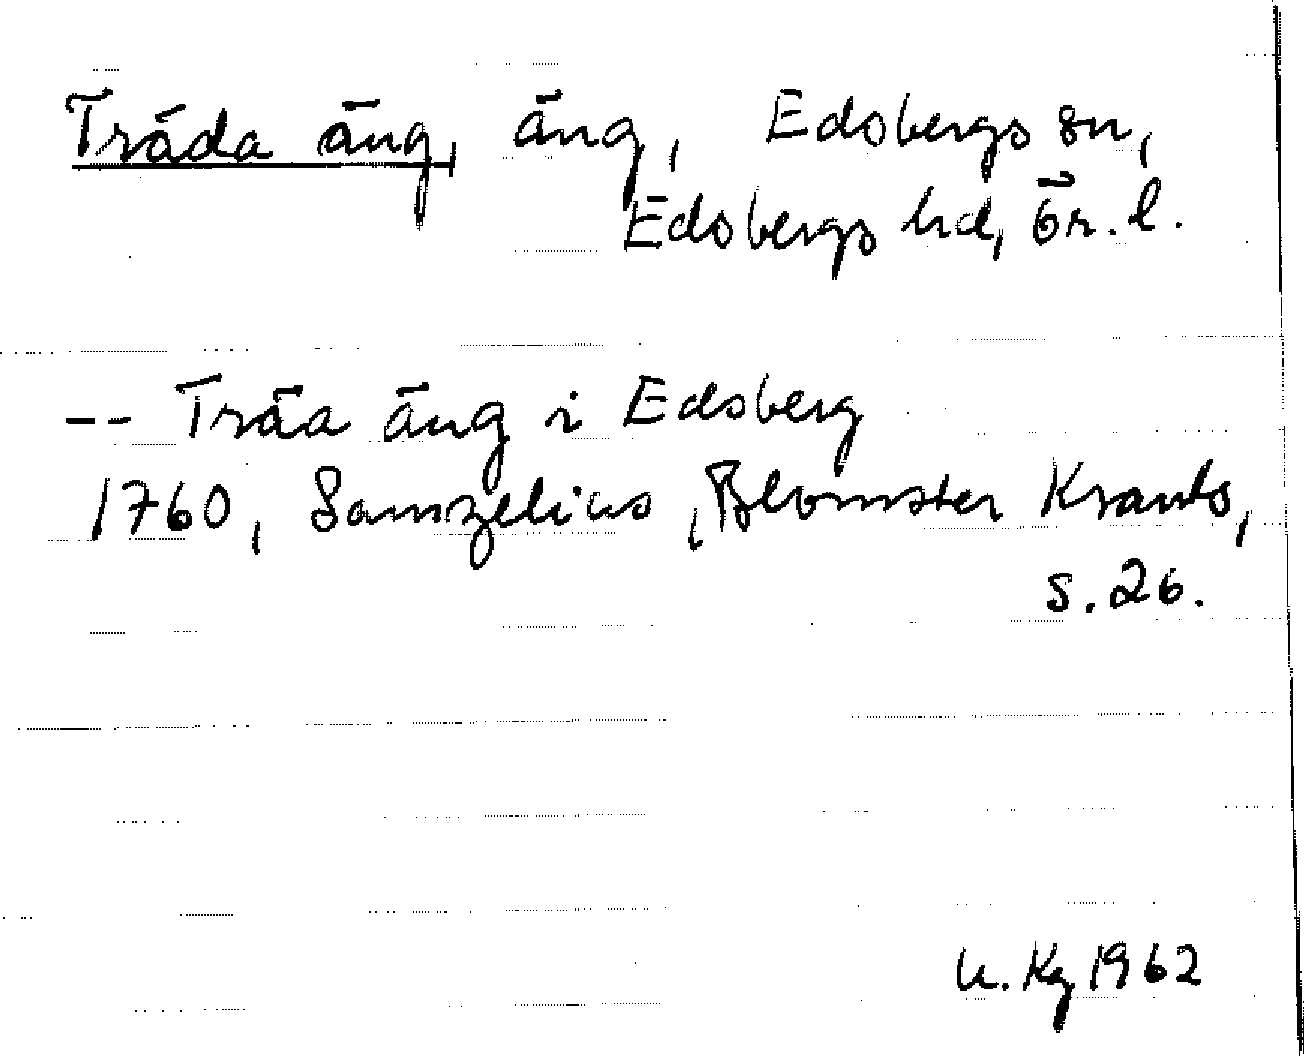 Träda äng, äng, Edsbergs sn,
Edsbergs hd, Ör. l.
-- Träa äng i Edsberg
1760, Samzelius, Blomster Krants,
s. 26.
K. Kg 1962